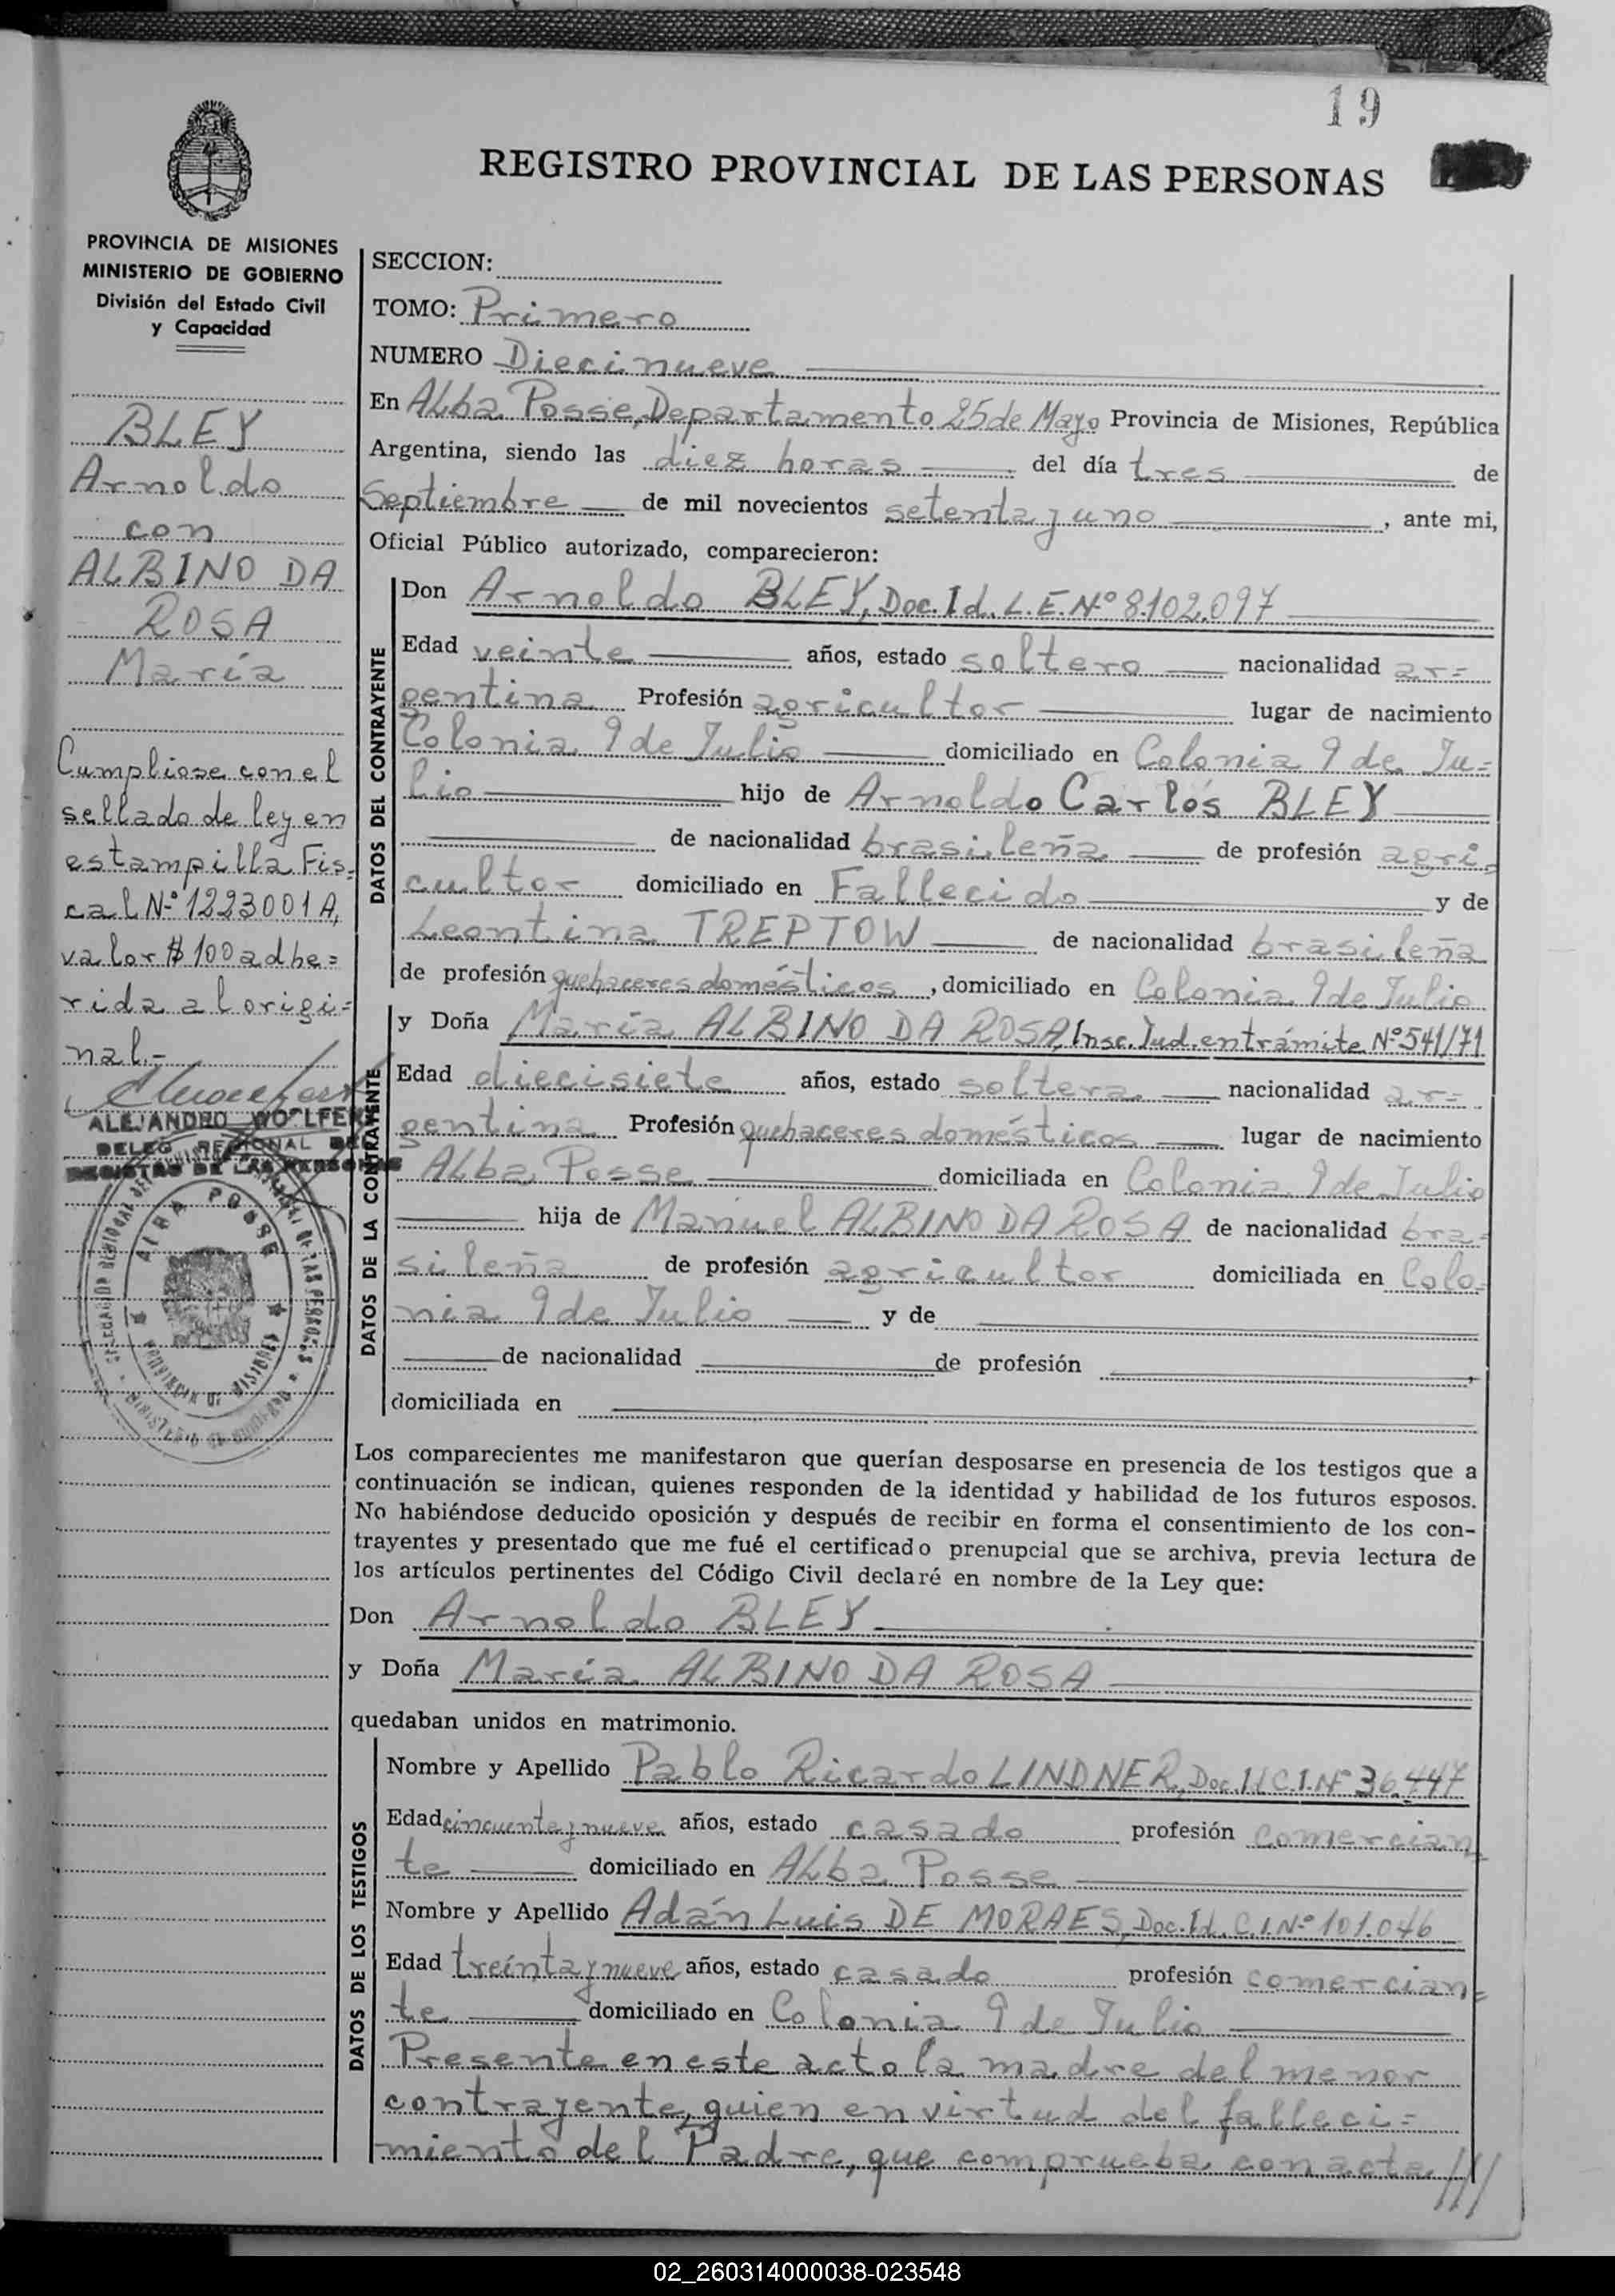 19
REGISTRO PROVINCIAL DE LAS PERSONAS
PROVINCIA DE MISIONES
MINISTERIO DE GOBIERNO
División del Estado Civil
y Capacidad
BLEY
Arnoldo
con
ALBINO DA
ROSA
María
Cumpliose con el
sellado de ley en
estampilla Fis=
cal Nº 1223001 A,
valor $ 100 adhe=
rida al origi=
nal.-
ALEJANDRO WOLFER
DELEG. REGIONAL DEL
REGISTRO DE LAS PERSONAS
ALBA POSSE
PROVINCIA DE MISIONES
SECCION:
TOMO: Primero
NUMERO Diecinueve
En Alba Posse, Departamento 25 de Mayo Provincia de Misiones, República
Argentina, siendo las diez horas del día tres de
Septiembre de mil novecientos setenta y uno , ante mi,
Oficial Público autorizado, comparecieron:
DATOS DEL CONTRAYENTE
Don Arnoldo BLEY, Doc. Id. L.E. Nº 8.102.097
Edad veinte años, estado soltero nacionalidad ar=
gentina Profesión agricultor lugar de nacimiento
Colonia 9 de Julio domiciliado en Colonia 9 de Ju=
lio hijo de Arnoldo Carlos BLEY
de nacionalidad brasileña de profesión agri=
cultor domiciliado en Fallecido y de
Leontina TREPTOW de nacionalidad brasileña
de profesión quehaceres domésticos , domiciliado en Colonia 9 de Julio
DATOS DE LA CONTRAYENTE
y Doña María ALBINO DA ROSA, Insc. Jud. en trámite Nº 541/71
Edad diecisiete años, estado soltera nacionalidad ar=
gentina Profesión quehaceres domésticos lugar de nacimiento
Alba Posse domiciliada en Colonia 9 de Julio
hija de Manuel ALBINO DA ROSA de nacionalidad bra=
sileña de profesión agricultor domiciliada en Colo=
nia 9 de Julio y de
de nacionalidad de profesión ,
domiciliada en
Los comparecientes me manifestaron que querían desposarse en presencia de los testigos que a
continuación se indican, quienes responden de la identidad y habilidad de los futuros esposos.
No habiéndose deducido oposición y después de recibir en forma el consentimiento de los con-
trayentes y presentado que me fué el certificado prenupcial que se archiva, previa lectura de
los artículos pertinentes del Código Civil declaré en nombre de la Ley que:
Don Arnoldo BLEY
y Doña María ALBINO DA ROSA
quedaban unidos en matrimonio.
DATOS DE LOS TESTIGOS
Nombre y Apellido Pablo Ricardo LINDNER, Doc. Id. C.I. Nº 36.447
Edad cincuenta y nueve años, estado casado profesión comercian=
te domiciliado en Alba Posse
Nombre y Apellido Adán Luis DE MORAES, Doc. Id. C.I. Nº 101.046
Edad treinta y nueve años, estado casado profesión comercian=
te domiciliado en Colonia 9 de Julio
Presente en este acto la madre del menor
contrayente, quien en virtud del falleci=
miento del Padre, que comprueba con acta ///
02_260314000038-023548